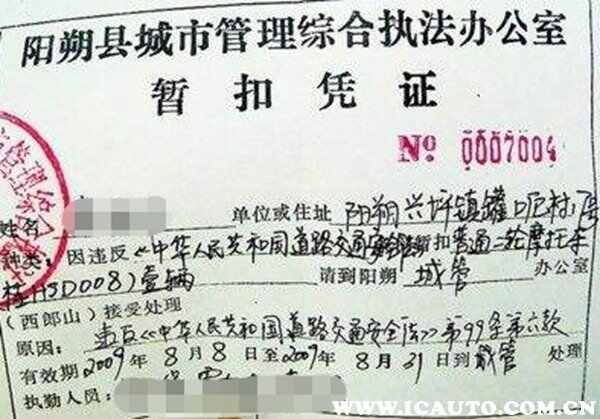 阳朔县城市管理综合执法办公室
暂扣凭证
№ 0007004
姓名 单位或住址 阳朔兴坪镇罐
种类: 因违反《中华人民共和国道路交通安全法》暂扣普通二轮摩托车
H5D008)壹辆 请到阳朔 城管 办公室
(西郎山)接受处理
原因: 违反《中华人民共和国道路交通安全法》第99条第六款
有效期 2009年8月8日至2009年8月31日到 城管 处理
执勤人员:
WWW.ICAUTO.COM.CN